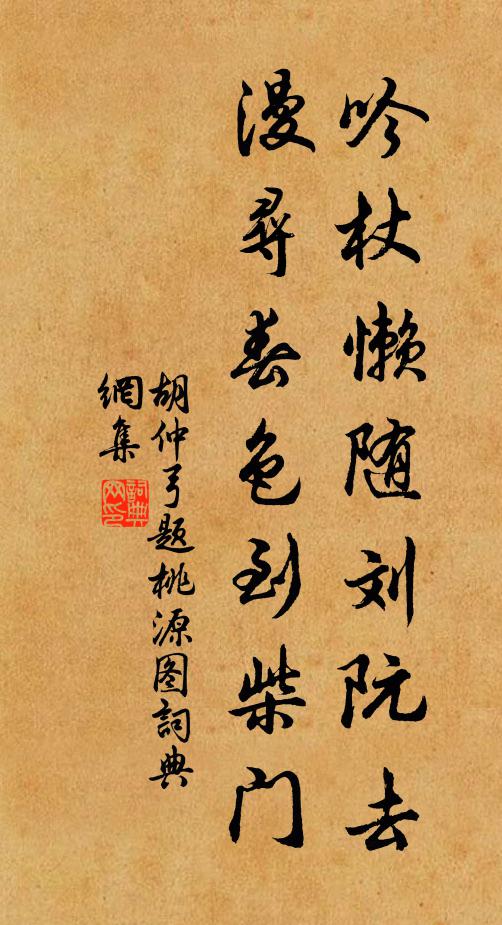 吟杖懒随刘阮去
漫寻春色到柴门
胡仲弓题桃源图詞典
網集
詞典
网印